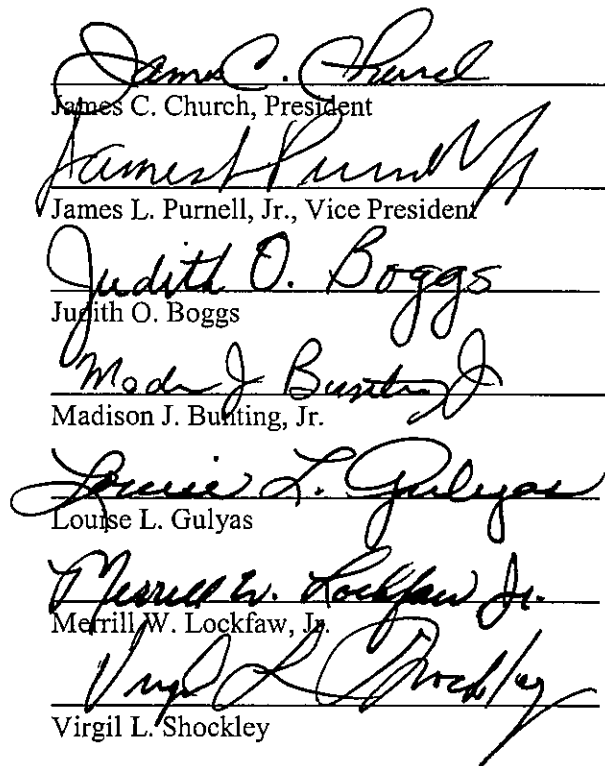 James C. Church
James C. Church, President
James L Purnell Jr
James L. Purnell, Jr., Vice President
Judith O. Boggs
Judith O. Boggs
Madison J Bunting Jr
Madison J. Bunting, Jr.
Louise L. Gulyas
Louise L. Gulyas
Merrill W. Lockfaw Jr.
Merrill W. Lockfaw, Jr.
Virgil L. Shockley
Virgil L. Shockley